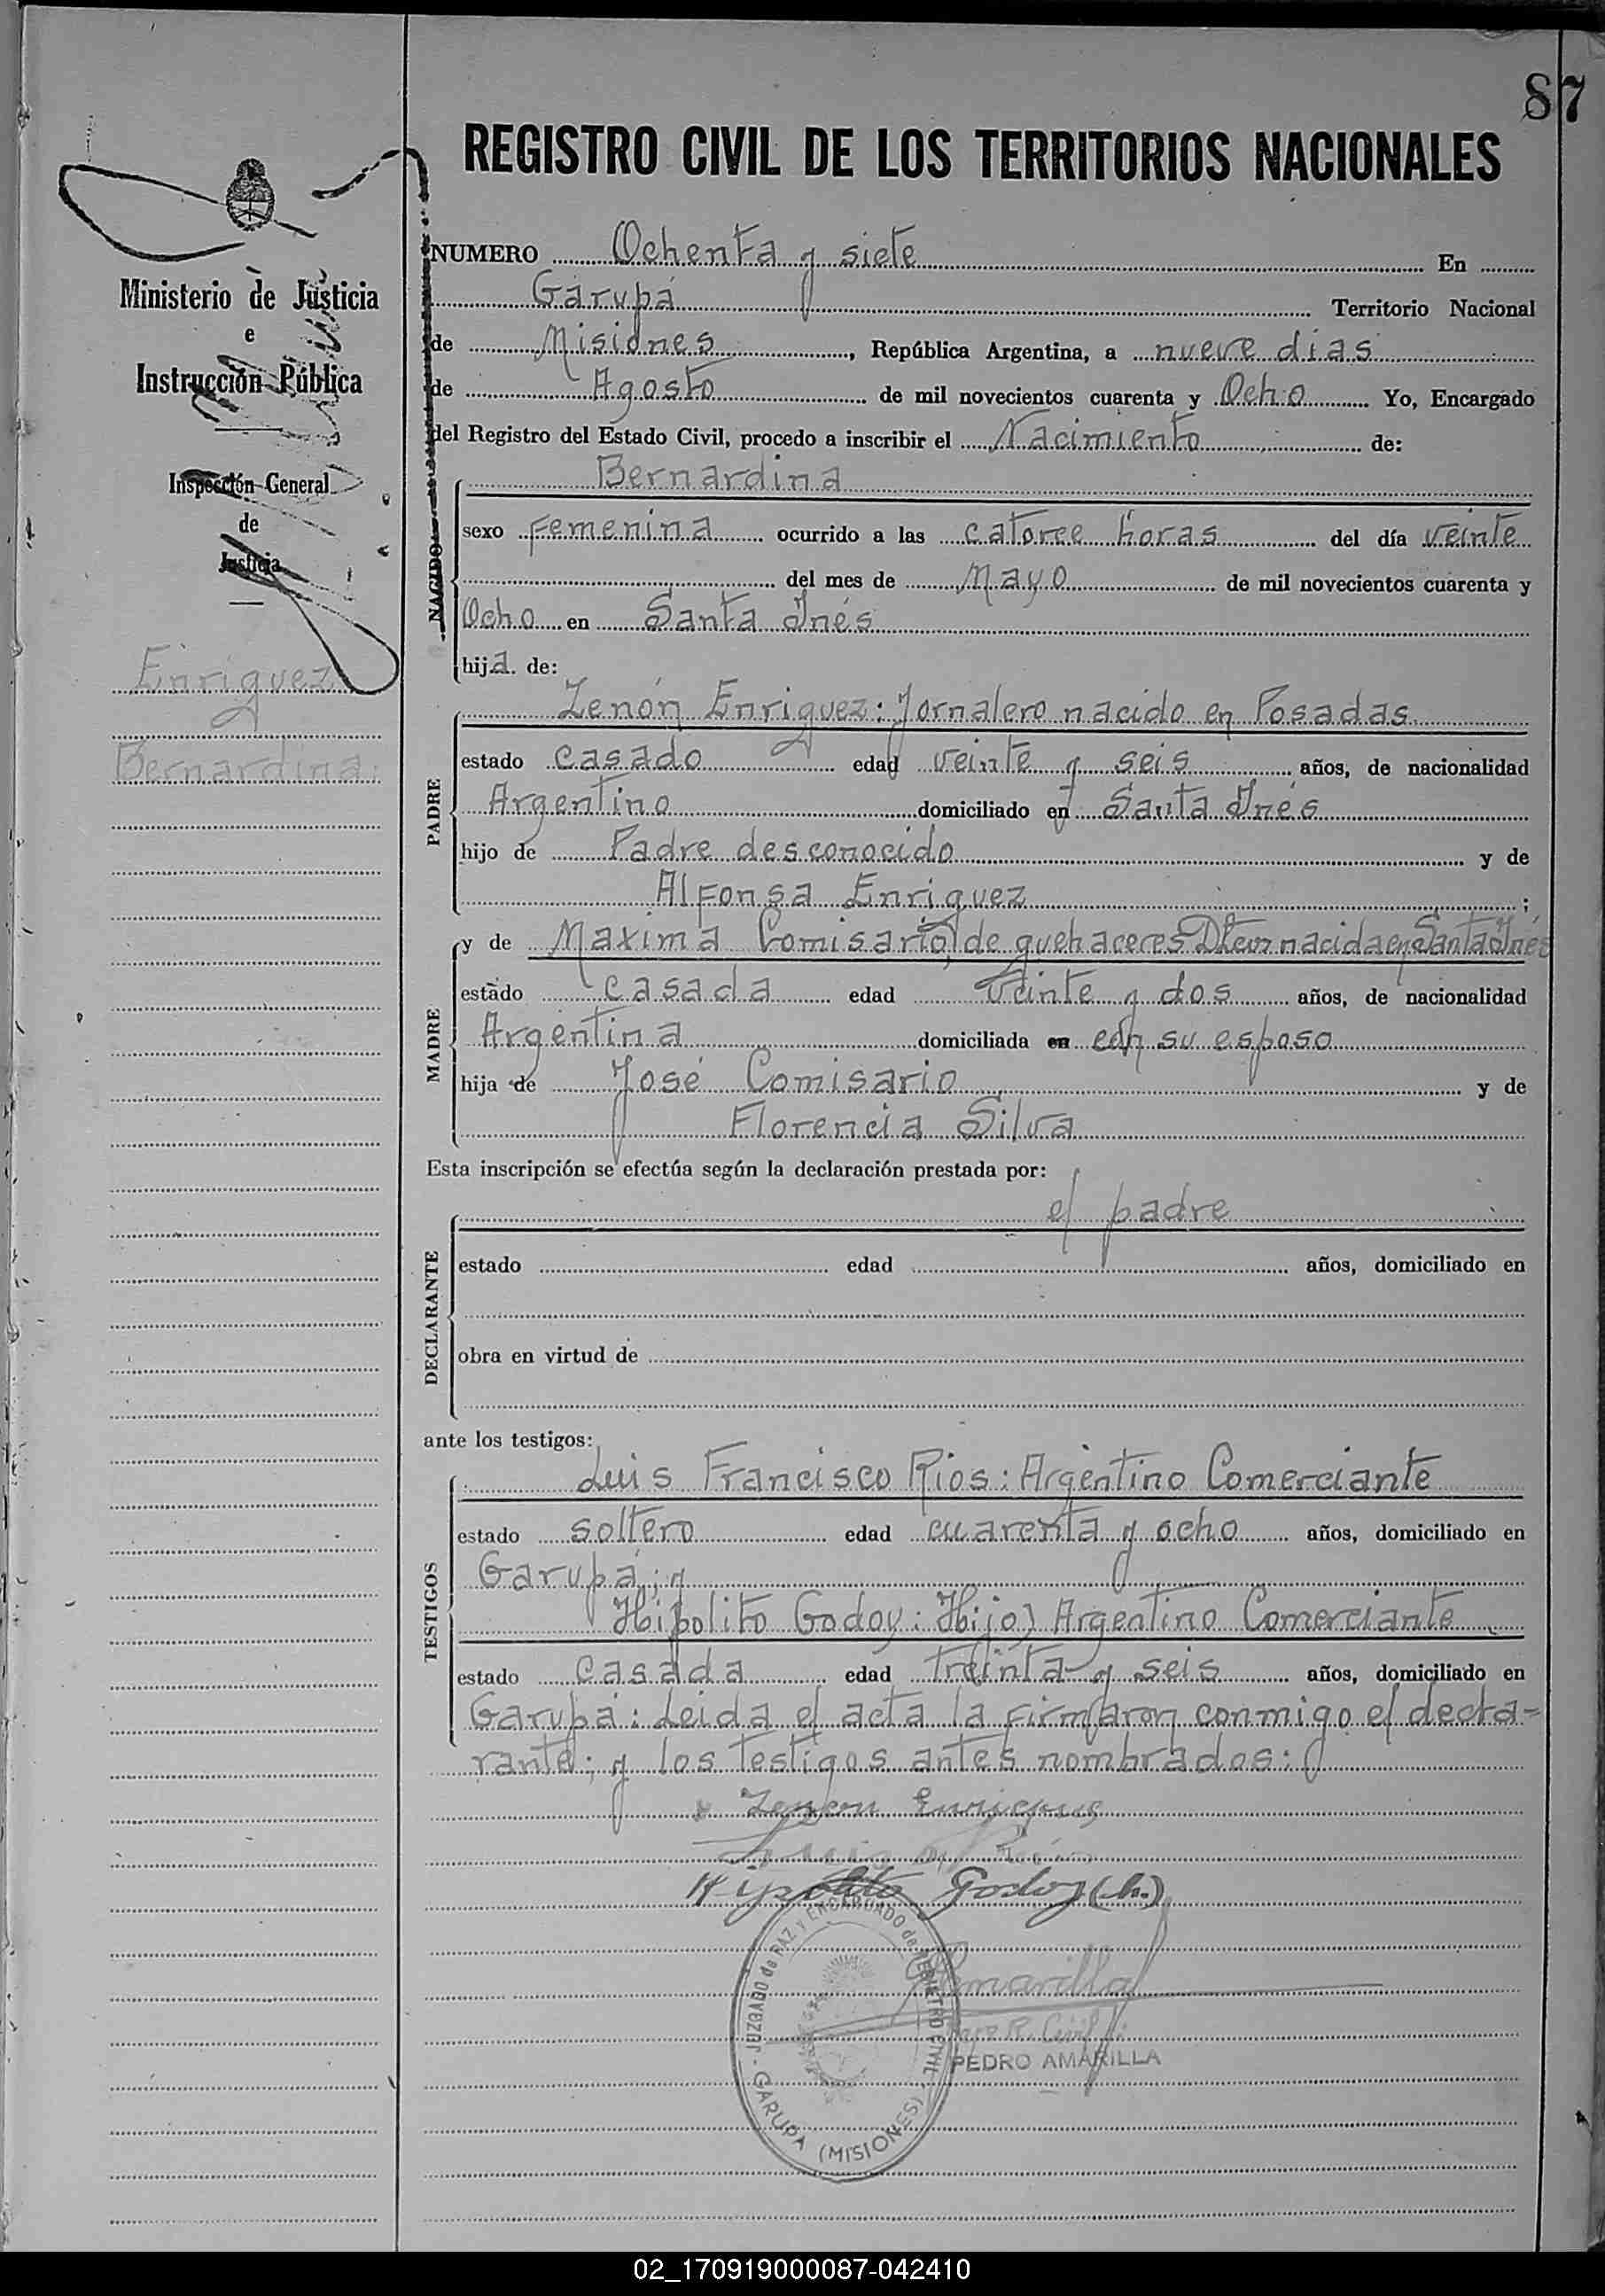 87
REGISTRO CIVIL DE LOS TERRITORIOS NACIONALES
Ministerio de Justicia
e
Instrucción Pública
Inspección General
de
Justicia
Enriquez
Bernardina
NUMERO Ochenta y siete En
Garupá Territorio Nacional
de Misiones, República Argentina, a nueve dias
de Agosto de mil novecientos cuarenta y Ocho Yo, Encargado
del Registro del Estado Civil, procedo a inscribir el Nacimiento de:
NACIDO
Bernardina
sexo Femenina ocurrido a las catorce horas del día veinte
del mes de Mayo de mil novecientos cuarenta y
Ocho en Santa Inés
hija de:
PADRE
Zenón Enriquez: Jornalero nacido en Posadas
estado casado edad veinte y seis años, de nacionalidad
Argentino domiciliado en Santa Inés
hijo de Padre desconocido y de
Alfonsa Enriquez ;
MADRE
y de Maxima Comisario, de quehaceres nacida en Santa Inés
estado casada edad veinte y dos años, de nacionalidad
Argentina domiciliada en con su esposo
hija de José Comisario y de
Florencia Silva
Esta inscripción se efectúa según la declaración prestada por:
DECLARANTE
el padre
estado edad años, domiciliado en
obra en virtud de
ante los testigos:
TESTIGOS
Luis Francisco Rios: Argentino Comerciante
estado soltero edad cuarenta y ocho años, domiciliado en
Garupá; y
Hipolito Godoy: Hijo) Argentino Comerciante
estado Casada edad treinta y seis años, domiciliado en
Garupá: Leida el acta la firmaron conmigo el decla-
rante; y los testigos antes nombrados:
Zenon Enriques
Luis F. Rios
Hipolito Godoy (h.)
Amarilla
PEDRO AMARILLA
JUZGADO de PAZ y ENCARGADO de REGISTRO CIVIL
GARUPA (MISIONES)
02_170919000087-042410